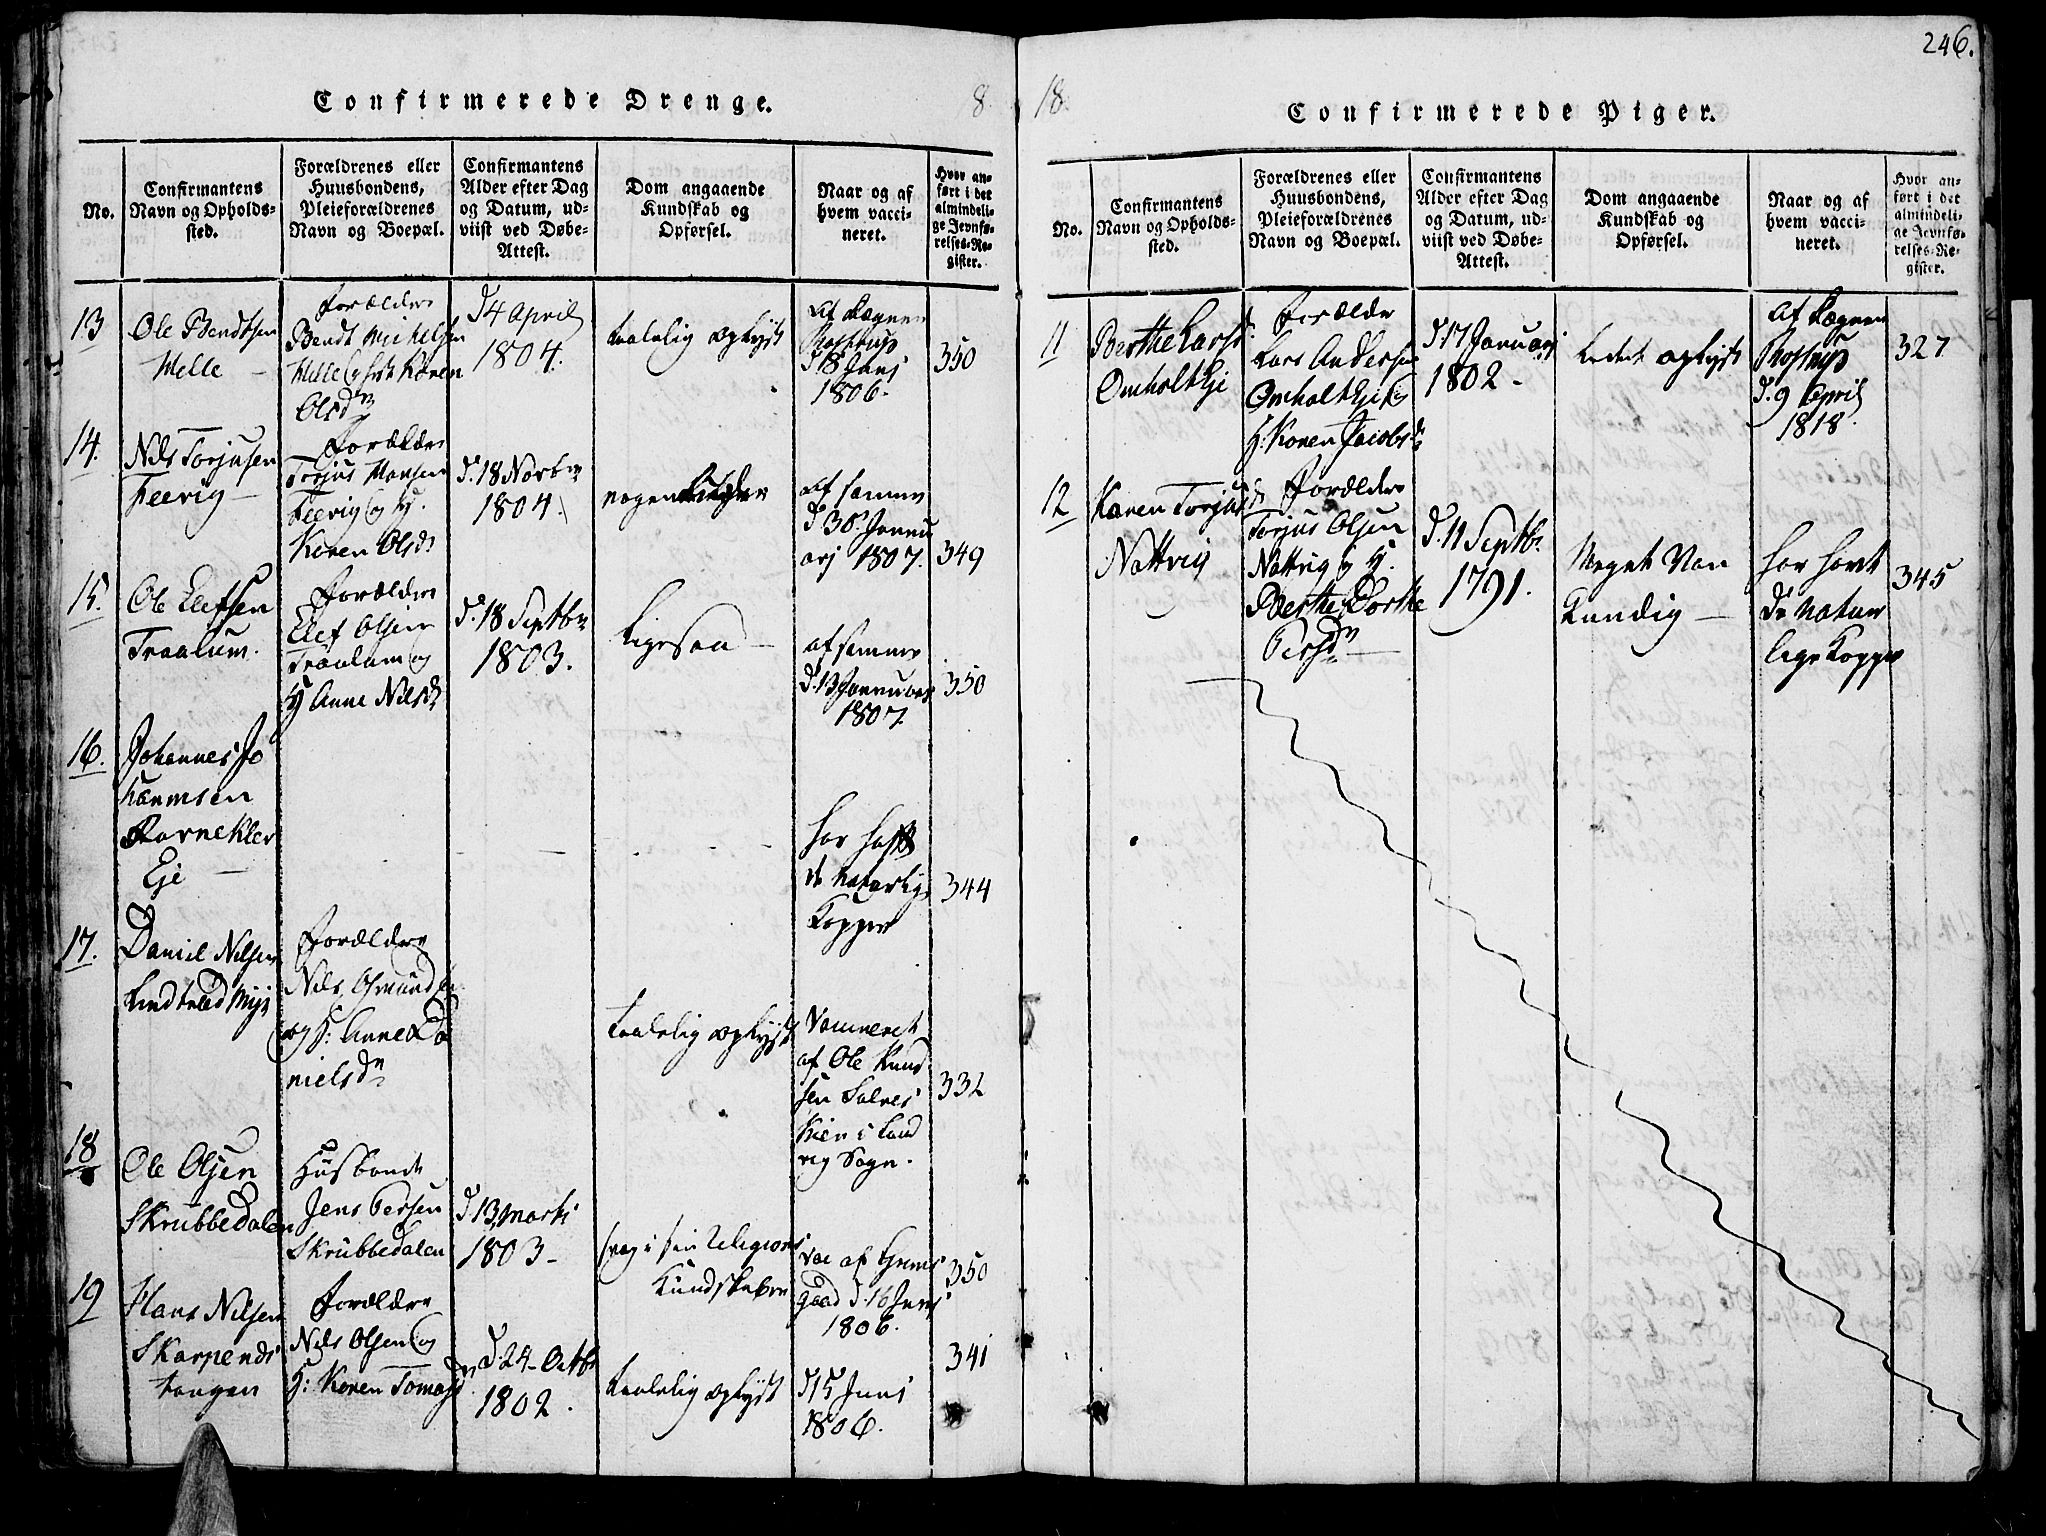 246.
Confirmerede Drenge.
8
No.
Confirmantens
Navn og Opholds-
sted.
Forældrenes eller
Huusbondens,
Pleieforældrenes
Navn og Boepæl.
Confirmantens
Alder efter Dag
og Datum, ud-
viist ved Døbe-
Attest.
Dom angaaende
Kundskab og
Opførsel.
Naar og af
hvem vacci-
neret.
Hvor an-
ført i det
almindeli-
ge Jevnfø-
relses-Re-
gister.
13
Ole Bendtsen
Melle
Forældre
Bendt Michelsen
Melle og hst Karen
Olsdr
d 4 April
1804.
taalelig oplyst
af Degnen
Rostrup
d 18 Juni
1806.
350
14.
Nils Torjusen
Feevig
Forældre
Torjus Hansen
Feevig og H.
Karen Olsdr
d. 18 Novbr
1804.
nogenledes
af samme
d 30 Janu
arj 1807.
349
15.
Ole Elefsen
Traalum.
Forældre
Elef Olsen
Traalum og
H Anne Nilsdr
d. 18 Septbr
1803.
Ligesaa
af samme
d. 13 Januar
1807.
350
16.
Johannes Jo
hannesen
Eje
har haft
de naturlige
Kopper
344
17.
Daniel Nilsen
Forældre
Nils Osmundsen
og H: Anne Da
nielsdr
taalelig oplyst
Vaccineret
af Ole Knud
sen Salves
Kien i Land
vig Sogn.
332
18
Ole Olsen
Skrubbedalen
Husbonde
Jens Persen
Skrubbedalen
d 13 Marti
1803
svag i sin Religions
Kundskaber
vac af Grims
gaard d. 16 Juni
1806.
350
19
Hans Nilsen
Skarpends
tangen
Forældre
Nils Olsen og
H: Karen Tomasdr
d. 24 Octbr
1802.
taalelig oplyst
d 15 Juni
1806.
341
18.
Confirmerede Piger.
No.
Confirmantens
Navn og Opholds-
sted.
Forældrenes eller
Huusbondens,
Pleieforældrenes
Navn og Boepæl.
Confirmantens
Alder efter Dag
og Datum, ud-
viist ved Døbe-
Attest.
Dom angaaende
Kundskab og
Opførsel.
Naar og af
hvem vacci-
neret.
Hvor an-
ført i det
almindeli-
ge Jevnfø-
relses-Re-
gister.
11
Berthe Larsd.
Omholt Eje
Forældre
Lars Andersen
Omholt Eje og
H: Karen Jacobsdr
d 17 Januarj
1802
Lidet oplyst
af Degnen
Rostrup
d. 9 April
1818.
327
12
Karen Torjusdr
Nattvig
Forældre
Torjus Olsen
Nattvig og H.
Berthe Dorthe
Persdr
d. 11 Septbr
1791.
Meget Van
Kundig
har havt
de natur
lige Kopper
345